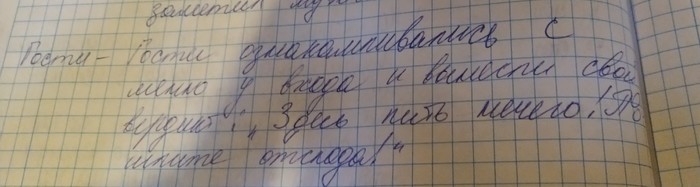 заметил
Гости – Гости ознакамливались с
меню у входа и вынесли свой
вердикт: „Здесь пить нечего!
шлите отсюда!"